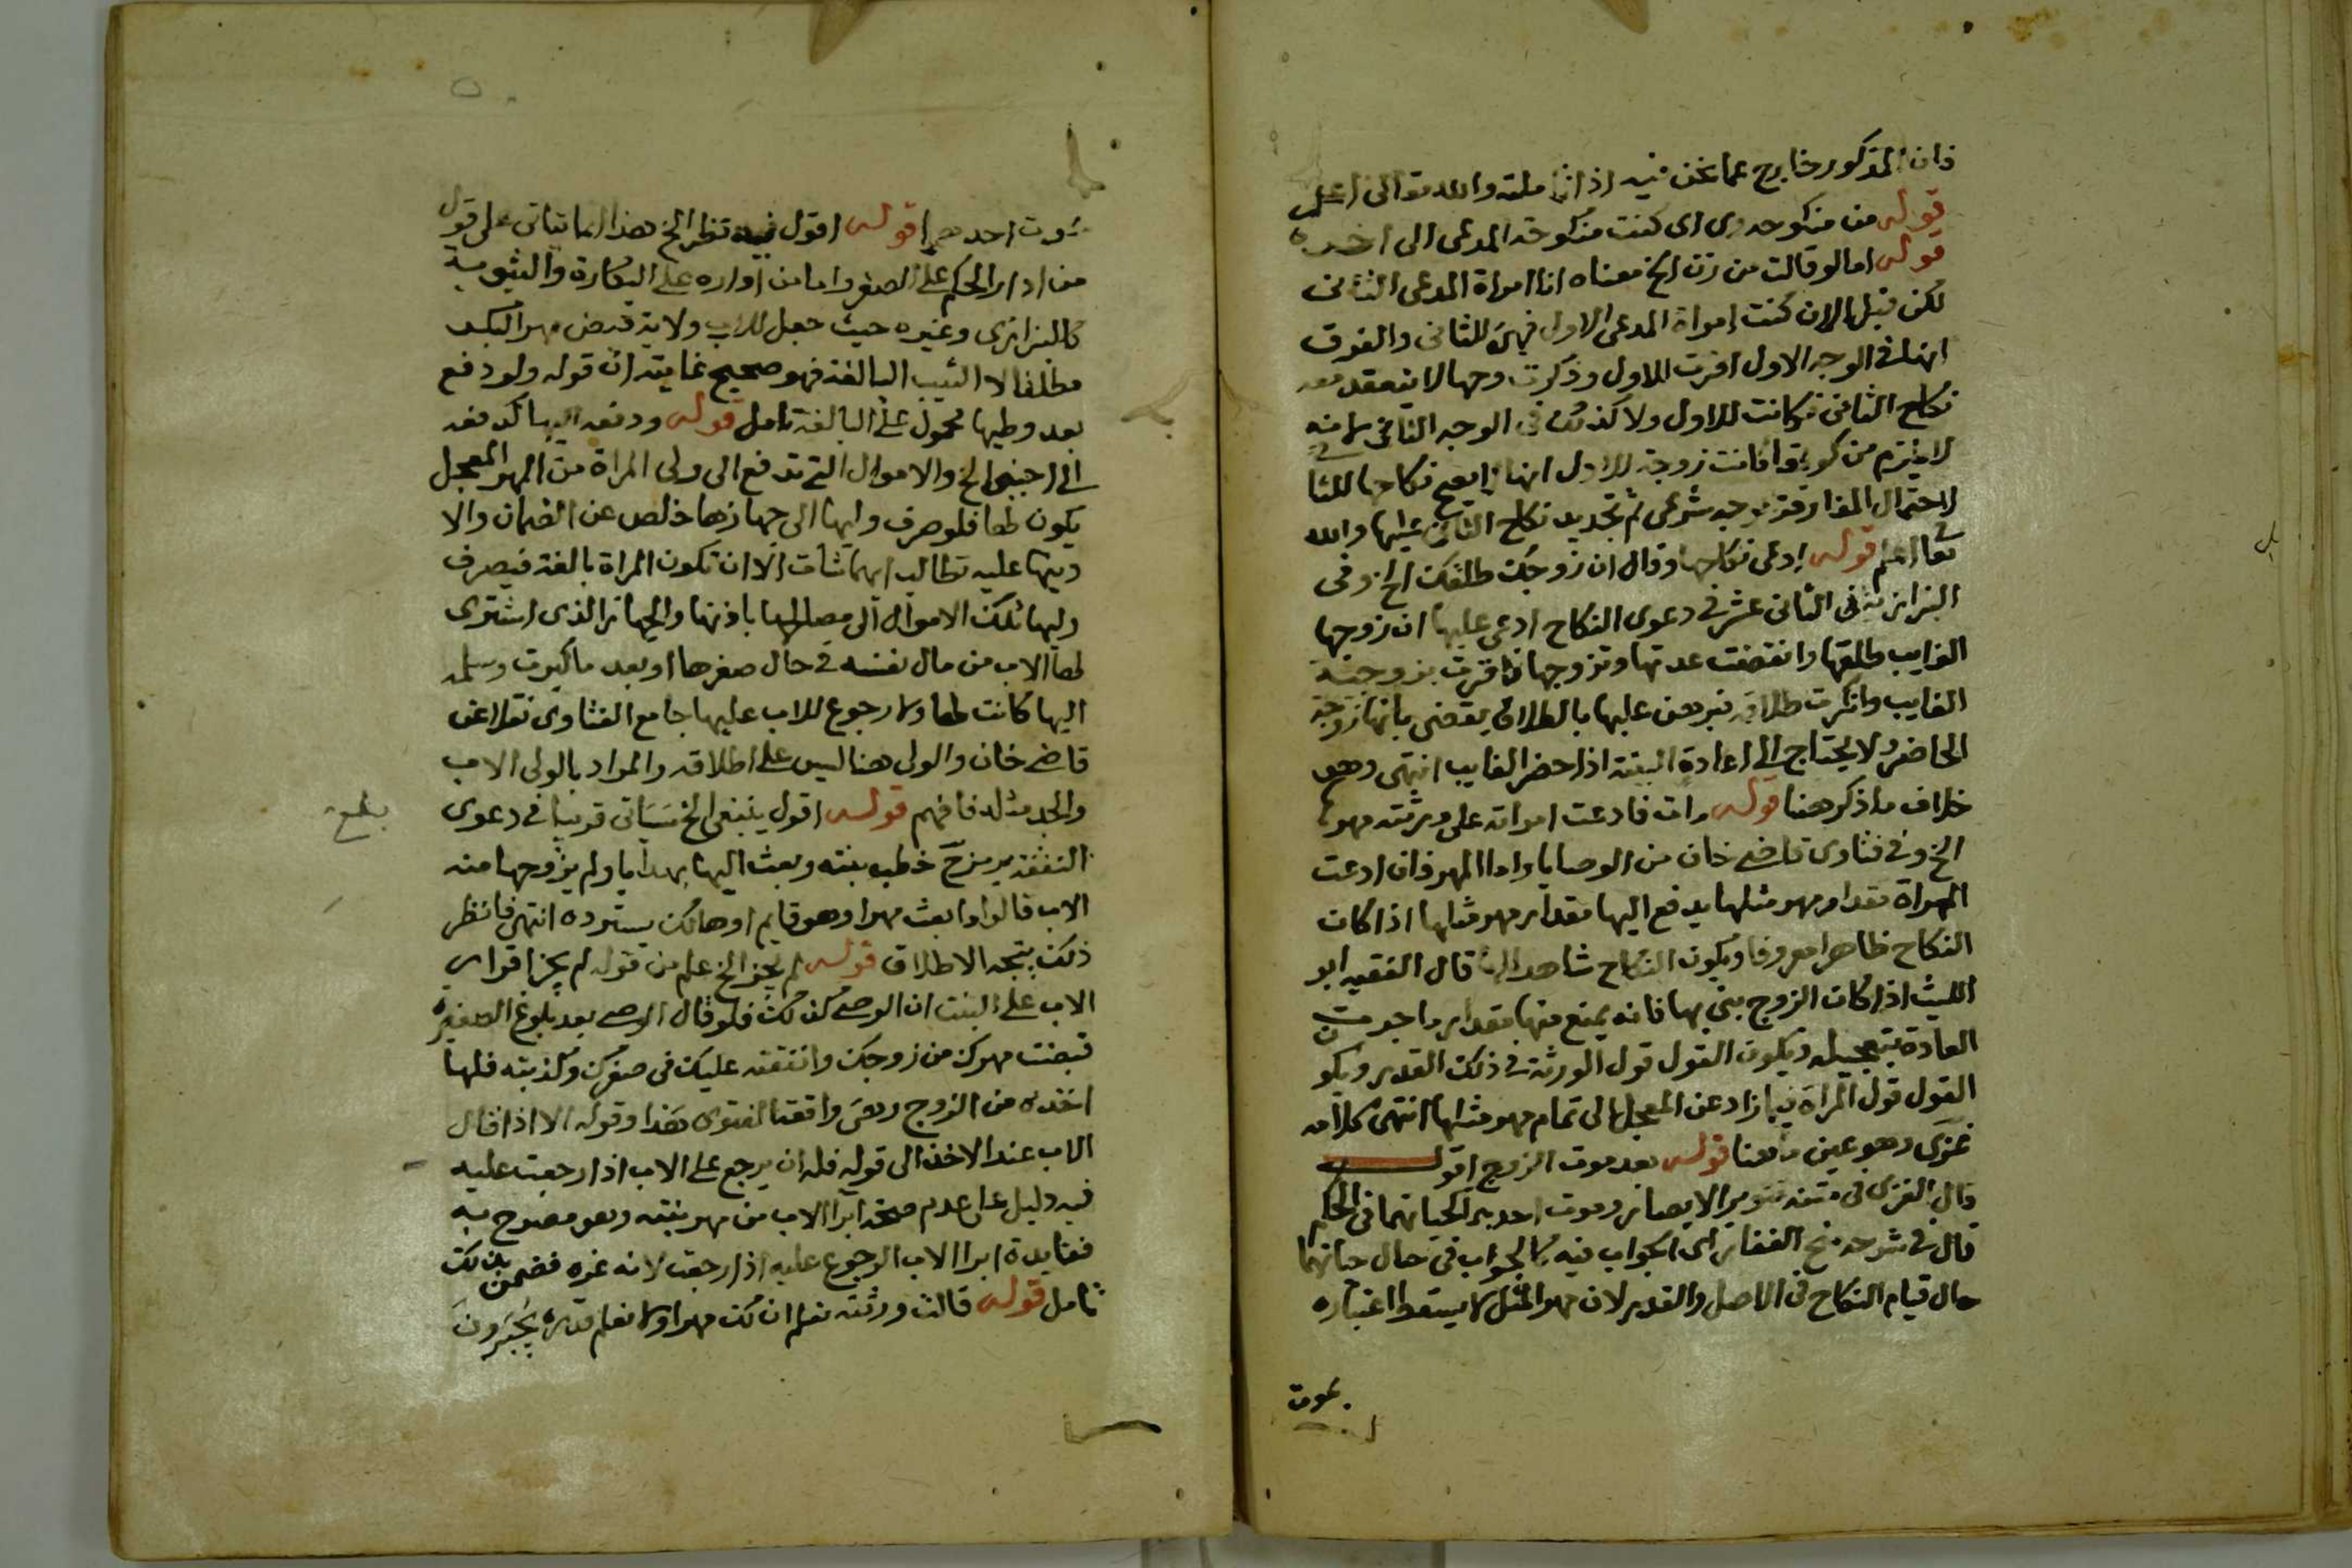 فان المذكور خارج عما نحن فيه اذا تاملته والله تعالى اعلم
قوله من منكوحه وى اى كنت منكوحة المدعى الى اخره
قوله اما لو قالت من زن الخ معناه انا امراة المدعى الثانى
لكن قبل الان كنت امراة المدعى الاول فهى للثانى والفرق
انها فى الوجه الاول اقرت للاول وذكرت وجها لا ينعقد معه
نكاح الثانى فكانت للاول ولا كذلك فى الوجه الثانى لانه
لا يلزم من كونها كانت زوجة للاول انها لا يصح نكاحها للثانى
لاحتمال المفارقة بوجه شرعى ثم تجديد نكاح الثانى عليها والله
تعالى اعلم قوله ادعى نكاحها وقال ان زوجك طلقك الخ وفى
البزازية فى الثانى عشر فى دعوى النكاح ادعى عليها ان زوجها
الغايب طلقها وانقضت عدتها وتزوجها فاقرت بزوجية
الغايب وانكرت طلاقه فبرهن عليها بالطلاق يقضى بانها زوجة
الحاضر ولا يحتاج الى اعادة البينة اذا حضر الغايب انتهى وهو
خلاف ما ذكر هنا قوله مات فادعت امراته على ورثته مهرها
الخ وفى فتاوى قاضى خان من الوصايا واما المهر فان ادعت
المراة مقدار مهر مثلها يدفع اليها مقدار مهر مثلها اذا كان
النكاح ظاهرا معروفا ويكون النكاح شاهدا لها قال الفقيه ابو
الليث اذا كان الزوج بنى بها فانه يمنع منها مقدار ما جرت
العادة بتعجيله ويكون القول قول الورثة فى ذلك القدر ويكون
القول قول المراة فيما زاد عن المعجل الى تمام مهر مثلها انتهى كلامه
غزى وهو عين ما هنا قوله بعد موت الزوج اقول
قال الغزى فى متنه تنوير الابصار وموت احدهما كحياتهما فى الحكم
قال فى شرحه منح الغفار اى الجواب فيه كالجواب فى حال حياتهما
حال قيام النكاح فى الاصل والقدر لان مهر المثل لا يسقط اعتباره
بموت
بموت احدهما قوله اقول فيه نظر الخ هذا انما يتاتى على قول
من ادار الحكم على الصغر واما من اداره على البكارة والثيوبة
كالبزازى وغيره حيث جعل للاب ولاية قبض مهر البكر
مطلقا لا الثيب البالغة فهو صحيح غايته ان قوله ولو دفع
بعد وطيها محمول على البالغة تامل قوله ودفعه اليها كدفعه
الى اجنبى الخ والاموال التى تدفع الى ولى المراة من المهر المعجل
يكون لها فلو صرف وليها الى جهازها خلص عن الضمان والا
دينها عليه تطالب ايهما شات الا ان تكون المراة بالغة فيصرف
وليها تلك الاموال الى مصالحها باذنها والجهاز الذى اشترى
لها الاب من مال نفسه فى حال صغرها او بعد ما كبرت وسلمه
اليها كانت لها ولا رجوع للاب عليها جامع الفتاوى نقلا عن
قاضى خان والولى هنا ليس على اطلاقه والمراد بالولى الاب
والجد مثله فافهم قوله اقول ينبغى الخ سياتى قريبا فى دعوى
بلغ
النفقة برمز خ خطب بنته وبعث اليها بهدايا ولم يزوجها منه
الاب قالوا ما بعث مهرا وهو قايم او هالك يسترده انتهى فانظر
ذلك يتجه الاطلاق قوله لم يجز الخ علم من قوله لم يجز اقرار
الاب على البنت ان الوصى كذلك فلو قال الوصى بعد بلوغ الصغيرة
قبضت مهرك من زوجك وانفقته عليك فى صغرك وكذبته فلها
اخذه من الزوج وهى واقعة الفتوى هذا وقوله الا اذا قال
الاب عند الاخذ الى قوله فله ان يرجع على الاب اذا رجعت عليه
فيه دليل على عدم صحة ابرا الاب من مهر بنته وهو مصرح به
ففايدة ابرا الاب الرجوع عليه اذا رجعت لانه غره فضمن بذلك
تامل قوله قالت ورثته نعلم ان لك مهرا ولا نعلم قدره يجبرون